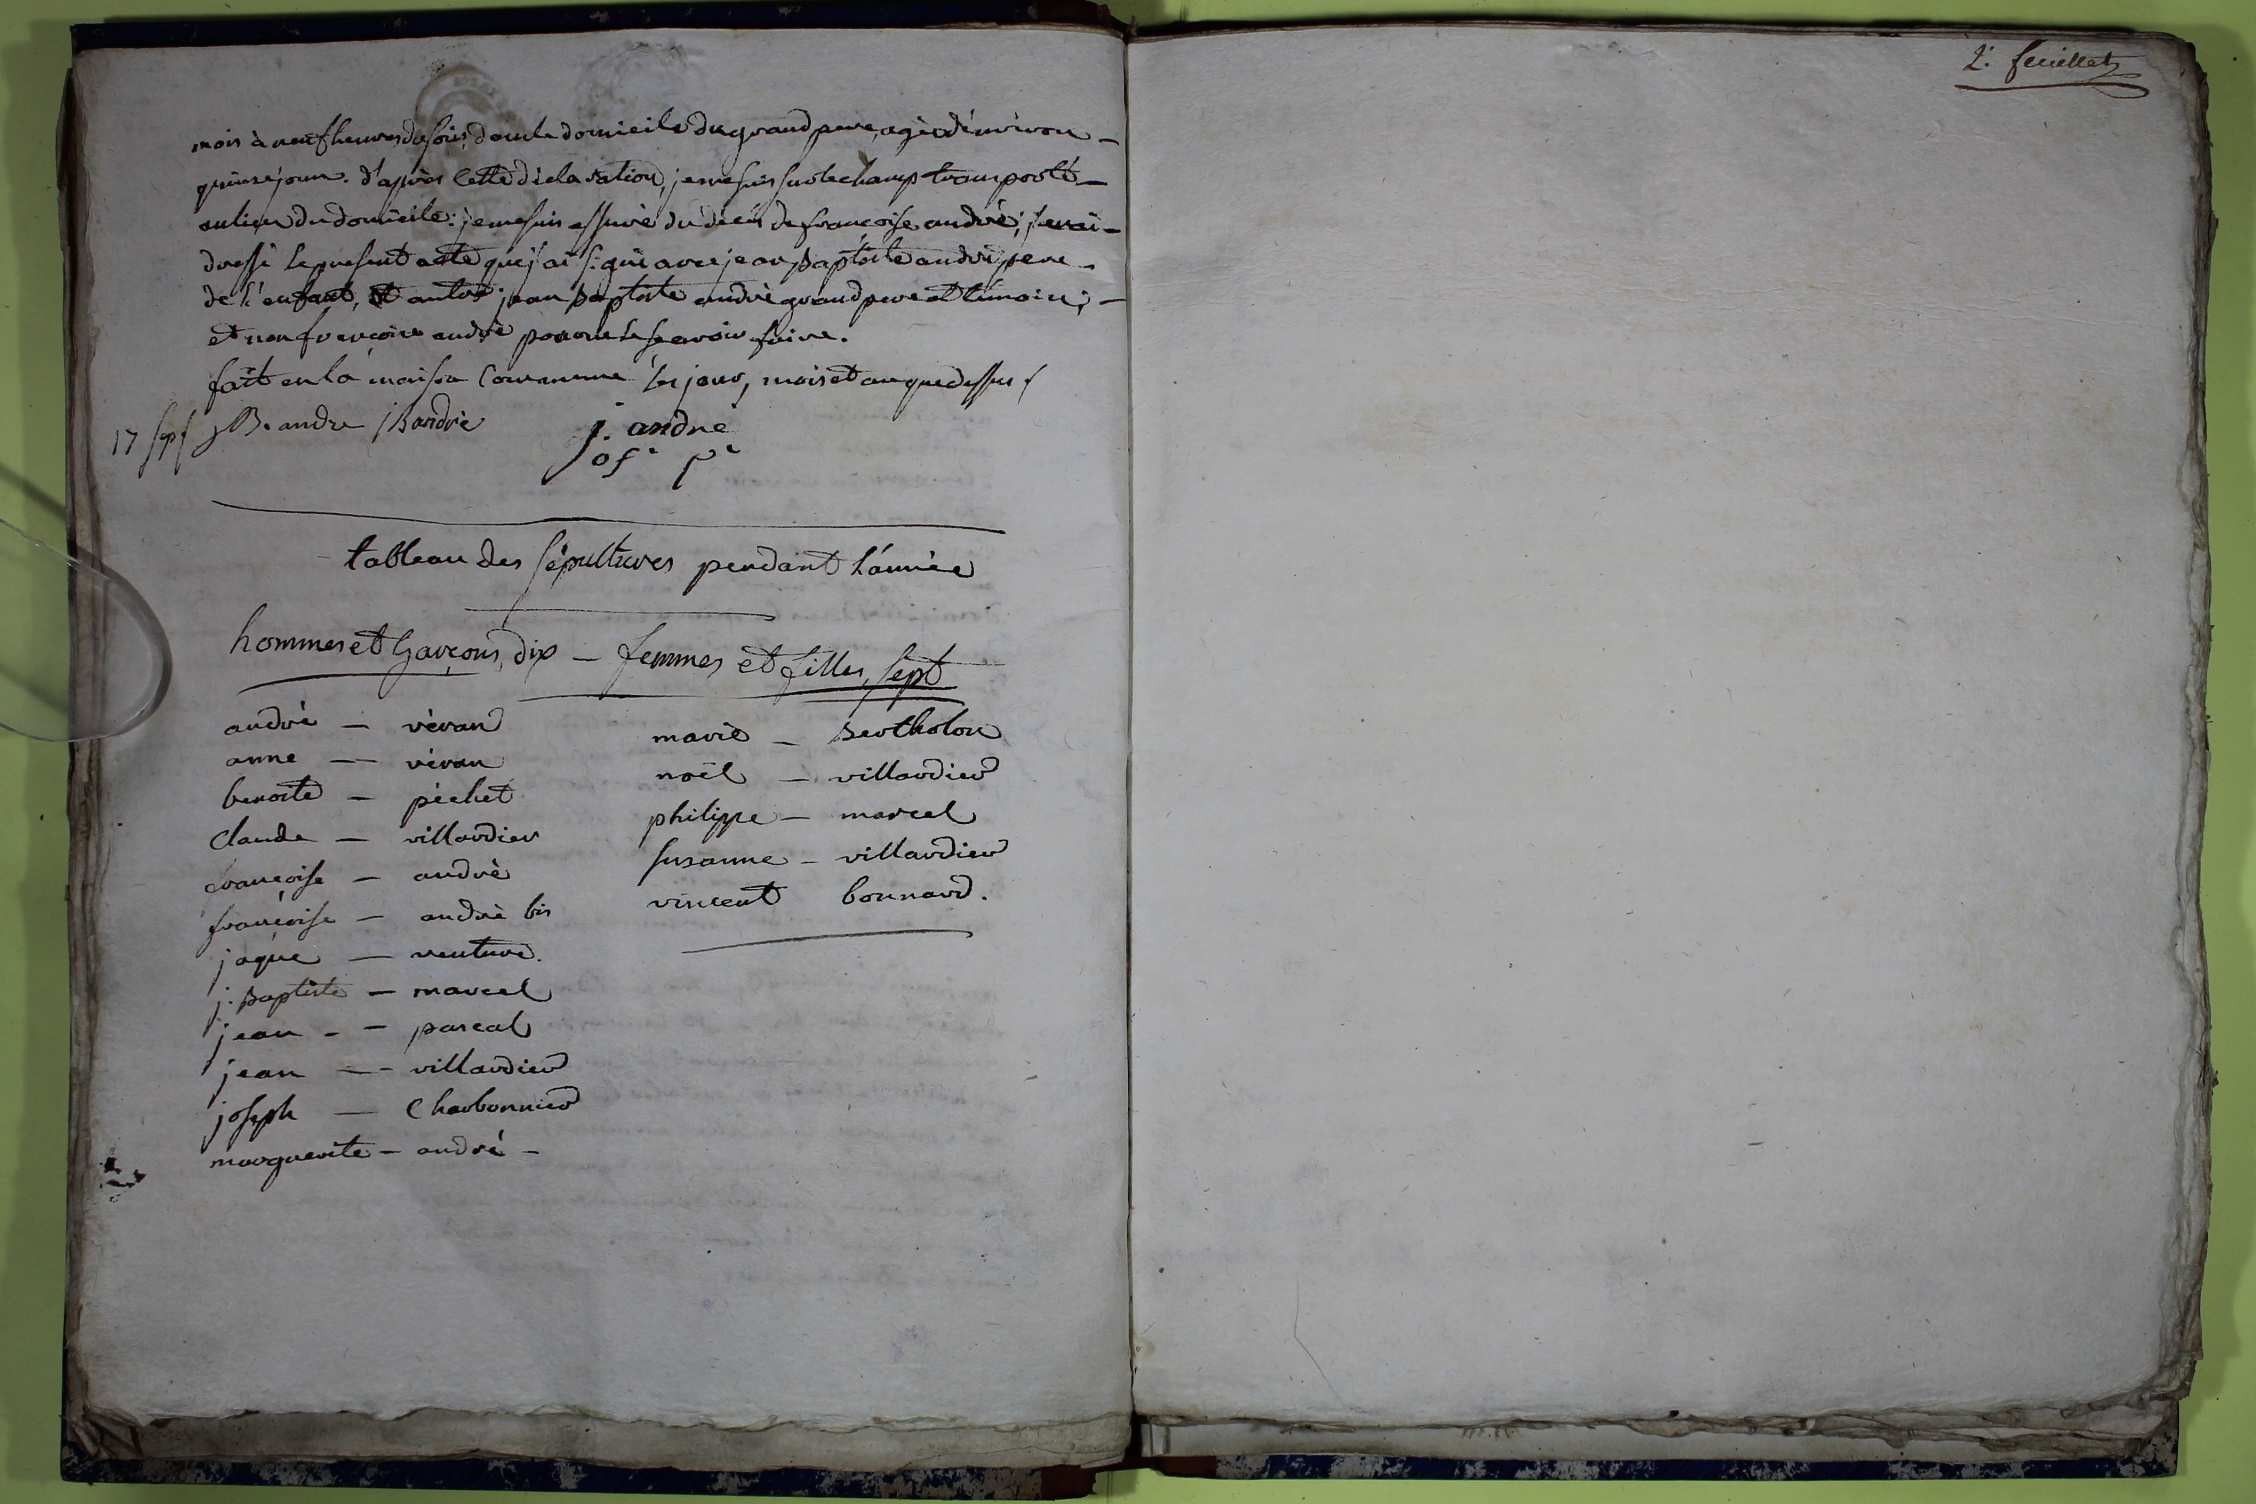 mois à neuf heures du soir, dans le domicile du grand pere, agée d'environ -
quinze jours. d'après cette déclaration, je me suis sur le champ transporté -
au lieu du domicile: je me suis assuré du décés de françoise andré; j'en ai -
dressé le present acte que j'ai signé avec jean baptiste andré pere -
de l'enfant, et autre jean baptiste andré grand pere et témoin; -
et non françoise andré pour ne le scavoir faire.
fait en la maison commune les jour, mois et an que dessus
17 sep. j B. andre j B andré j. andre
of. p.
tableau des sépultures pendant l'année
hommes et garçons, dix - femmes et filles, sept
andré - véran
anne - véran
benoite - péchet
claude - villardier
françoise - andré
françoise - andré bis
jaque - venture.
j. baptiste - marcel
jean - - pascal
jean - - villardier
joseph - charbonnier
marguerite - andré -
marie - bertholon
noël - villardier
philippe - marcel
susanne - villardier
vincent bonnard.
2. feuillet